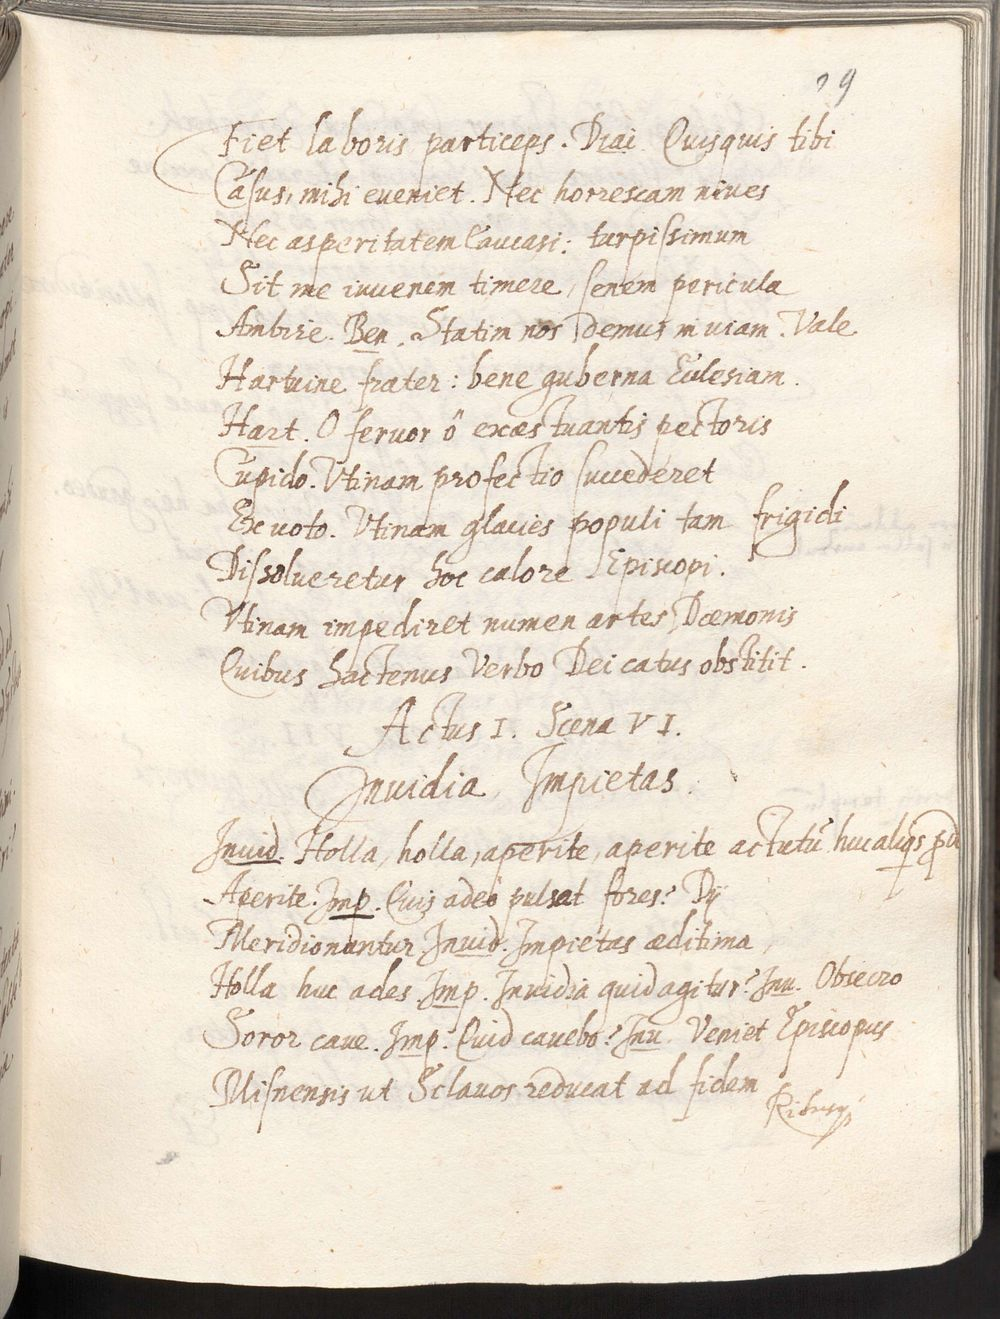 29
Fiet laboris particeps. Diai Quisquis tibi
Casus, mihi eueniet. Nec horrescam niues
Nec asperitatem Caucasi: turpissimum
Sit me iuuenem timere, senem pericula
Ambire. Ben. Statim nos demus in uiam. Vale
Hartuine frater: bene guberna Eclesiam.
Hart. O feruor ô exæstuantis pectoris
Cupido. Vtinam profectio succederet
Ex uoto. Vtinam glacies populi tam frigidi
Dissolueretur hoc calore Episcopi.
Vtinam impediret numen artes Dæmonis
Quibus hactenus Verbo Dei catus obstitit.
Actus I. Scena VI.
Inuidia, Impietas.
Inuid. Holla, holla, aperite, aperite actutū huc
Aperite. Imp. Quis adeò pulsat fores? Dij
Meridionantur. Inuid. Impietas æditima,
Holla huc ades. Imp. Inuidia quid agitur? Inu. Obsecro
Soror caue. Imp. Quid cauebo? Inu. Veniet Episcopus
Misnensis ut Sclauos reducat ad fidem